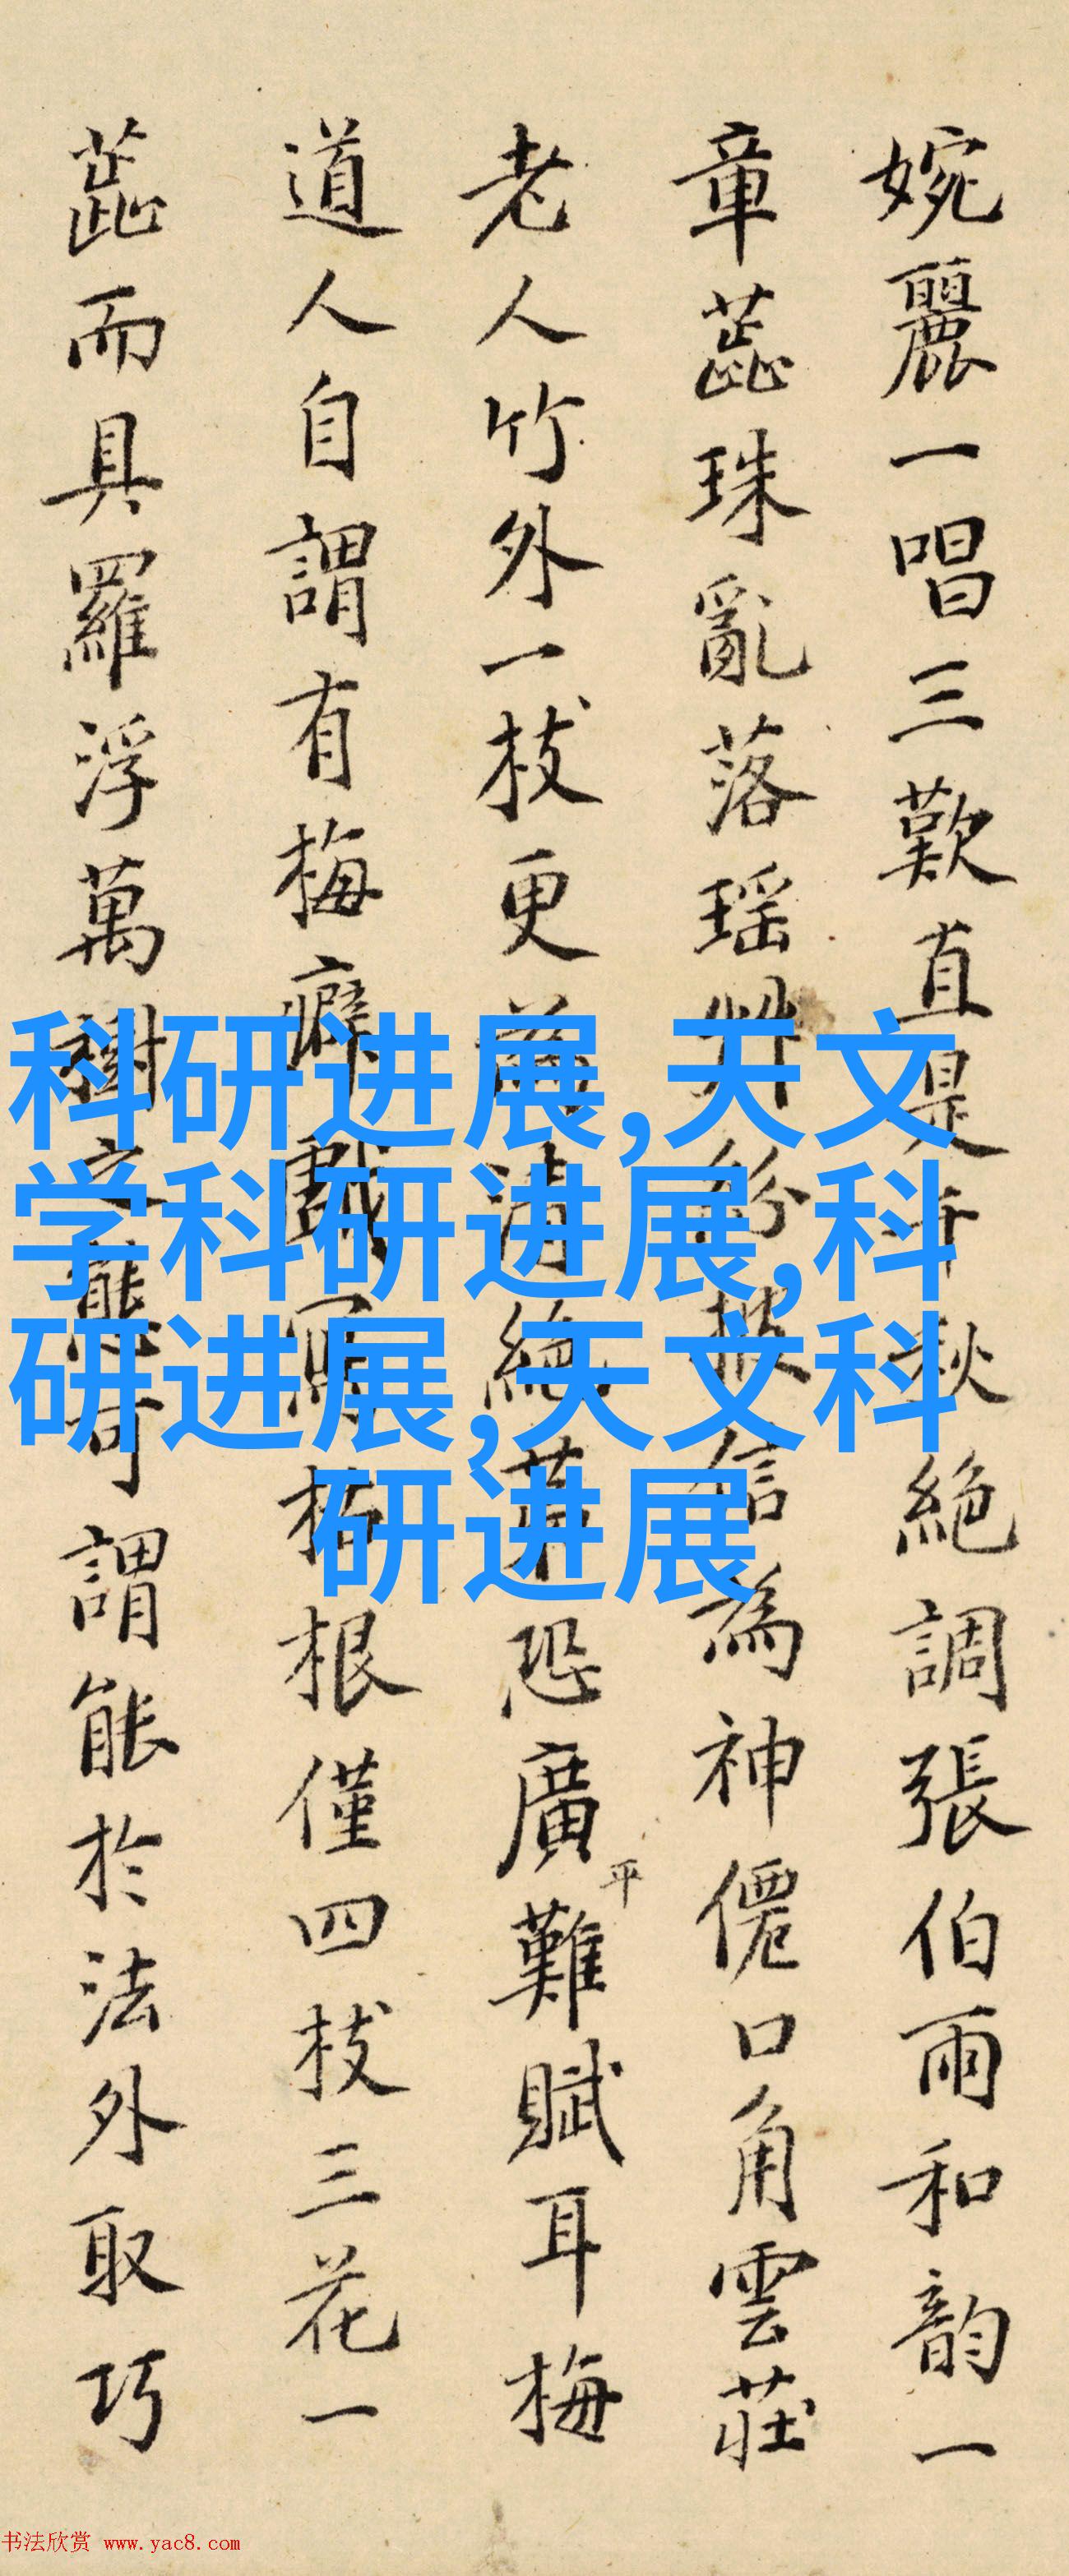 婉麗一唱三歎直是千秋絕調張伯雨和韵一
章蕋珠亂落瑶艸紛披信為神僊口角雲莊
老人竹外一枝更為清絕第恐廣平難賦耳梅
道人自謂有梅癖戲寫梅根僅四枝三花一
蕋而具羅浮萬樹之態可謂能於法外取巧
科研进展,天文
学科研进展,科
研进展,天文科
研进展
书法欣赏 www.yac8.com